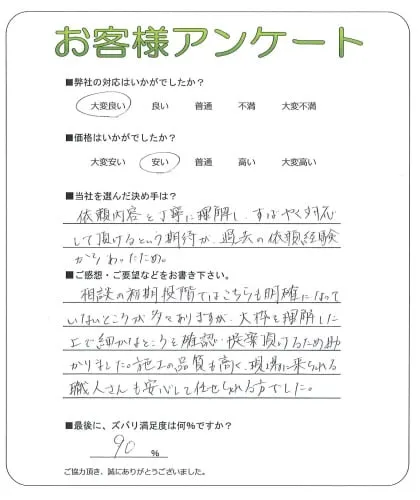 お客様アンケート
■弊社の対応はいかがでしたか？
大変良い 良い 普通 不満 大変不満
■価格はいかがでしたか？
大変安い 安い 普通 高い 大変高い
■当社を選んだ決め手は？
依頼内容を丁寧に理解し、すばやく対応
して頂けるという期待が、過去の依頼経験
からあったため。
■ご感想・ご要望などをお書き下さい。
相談の初期段階ではこちらも明確になって
いないところが多々ありますが、大枠を理解した
上で細かなところを確認・提案頂けるため助
かりました。施工の品質も高く、現場に来られる
職人さんも安心して任せられる方でした。
■最後に、ズバリ満足度は何％ですか？
90 %
ご協力頂き、誠にありがとうございました。